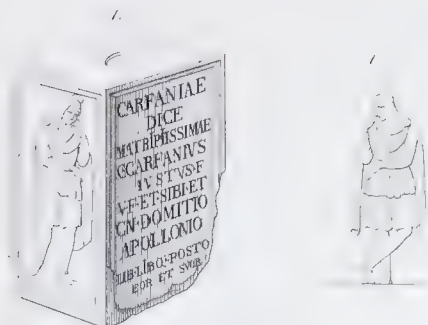 CARFANIAE
DICE
MATRI PIISSIMAE
C·CARFANIVS
IVSTVS·F
V·F·ET·SIBI·ET
CN·DOMITIO
APOLLONIO
LIB·LIBQ·POSTQ
EOR ET SVOR